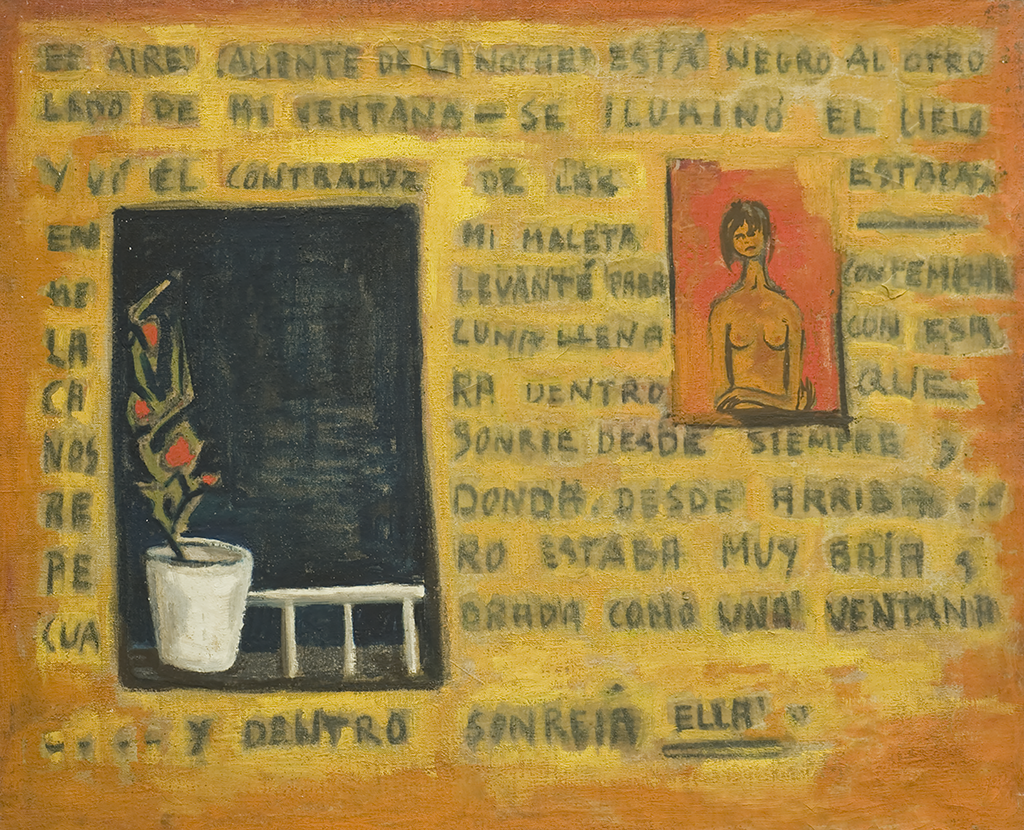 EL AIRE CALIENTE DE LA NOCHE ESTÁ NEGRO AL OTRO
LADO DE MI VENTANA — SE ILUMINÓ EL CIELO
Y VÍ EL CONTRALUZ DE LAS ESTACAS
EN MI MALETA —
ME LEVANTÉ PARA CONTEMPLAR
LA LUNA LLENA CON ESA
CA RA DENTRO QUE
NOS SONRIE DESDE SIEMPRE ,
RE DONDA DESDE ARRIBA ...
PE RO ESTABA MUY BAJA ,
CUA DRADA COMO UNA VENTANA
.... Y DENTRO SONREÍA ELLA